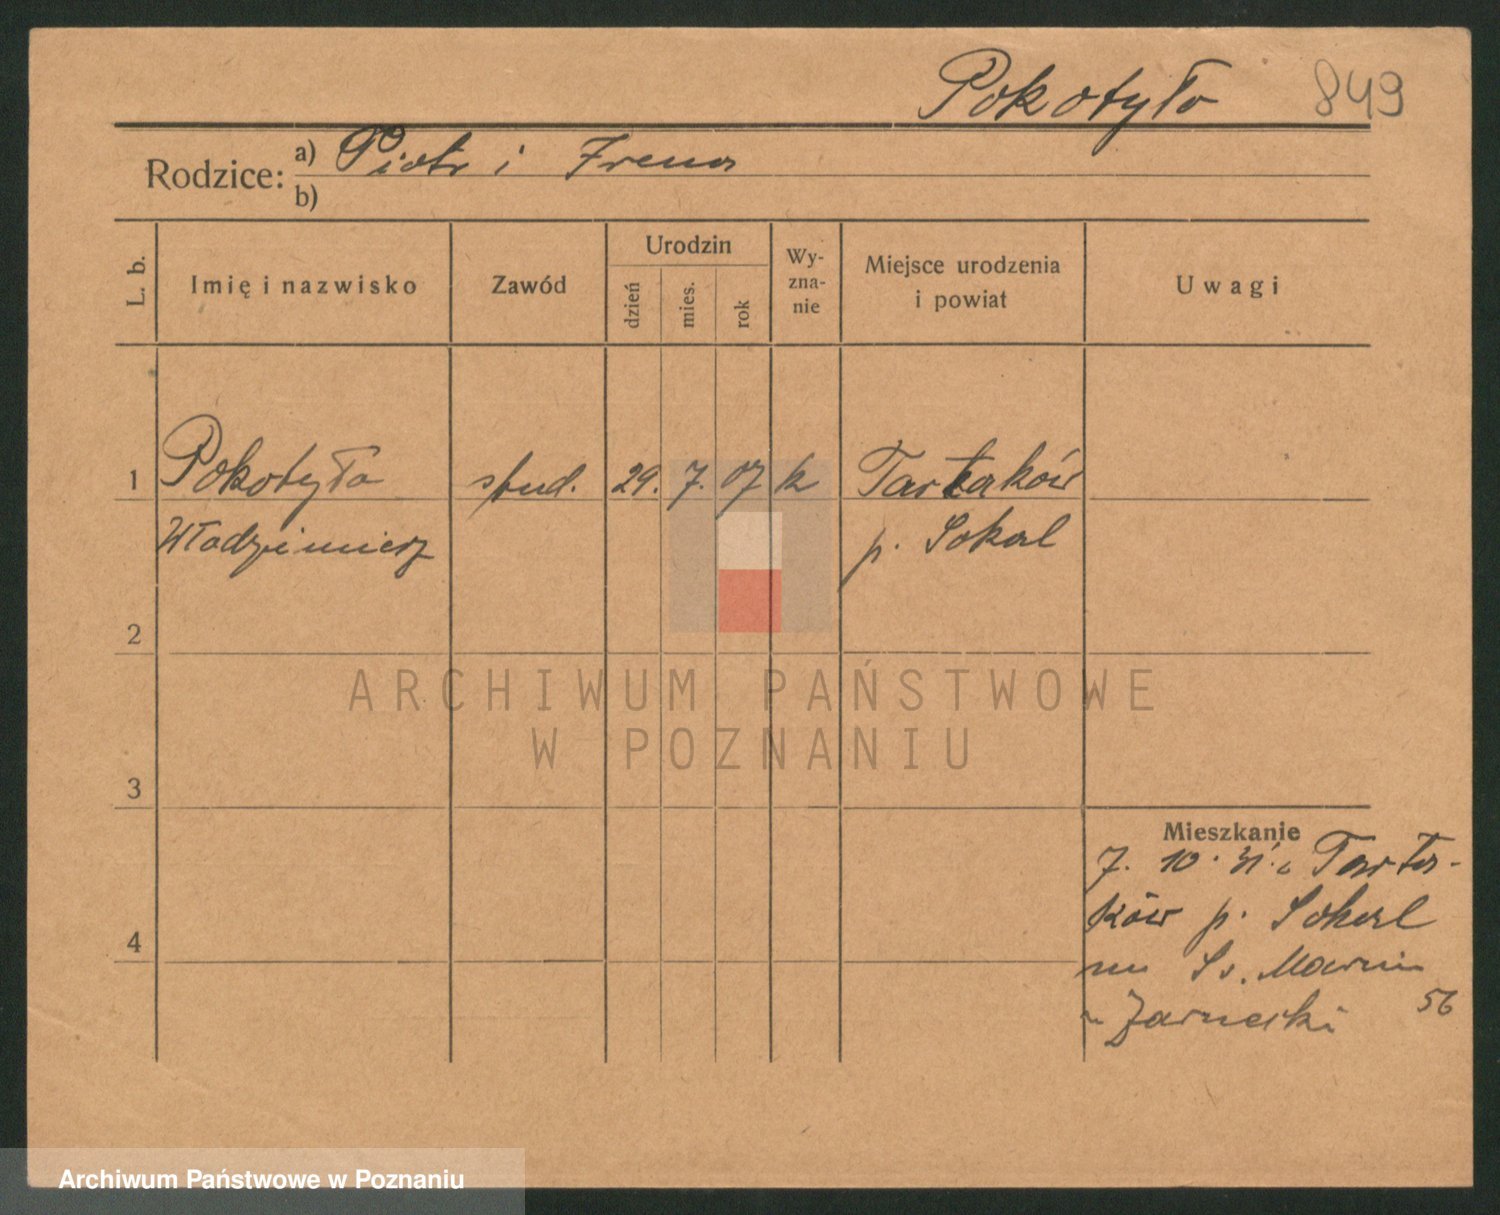 Pokotyło 849
Rodzice: a) Piotr i Irena
b)
L. b. Imię i nazwisko Zawód Urodzin dzień mies. rok Wy-zna-nie Miejsce urodzenia i powiat Uwagi
1 Pokotyło stud. 29. 7. 07 k Tartaków
Włodzimierz p. Sokal
2
ARCHIWUM PAŃSTWOWE
W POZNANIU
3
Mieszkanie
7. 10. 31. Tarta-
ków p. Sokal
4
Św. Marcin
Żarnecki 56
Archiwum Państwowe w Poznaniu